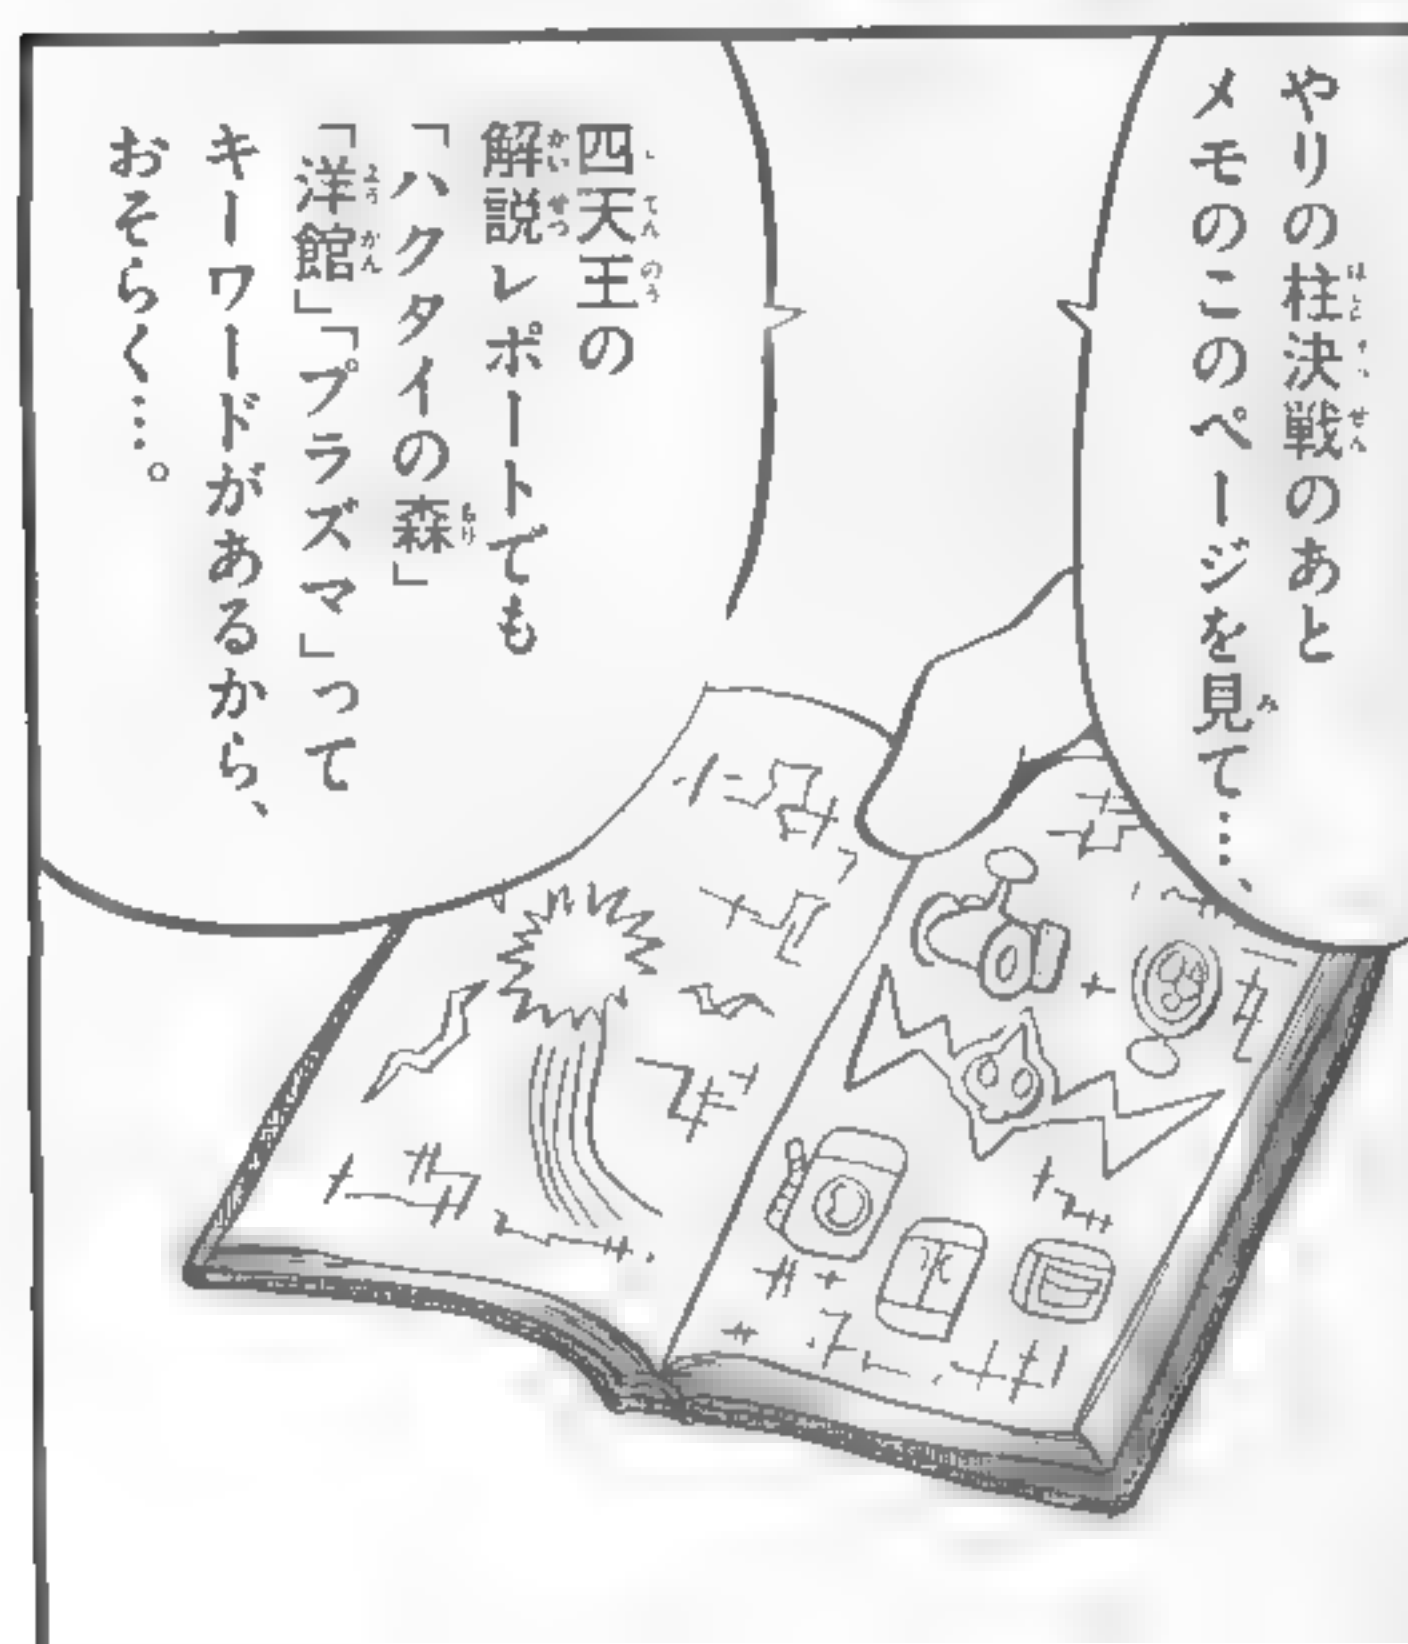 やりの柱決戦のあと
メモのこのページを見て…、
四天王の
解説レポートでも
「ハクタイの森」
「洋館」「プラズマ」って
キーワードがあるから、
おそらく…。